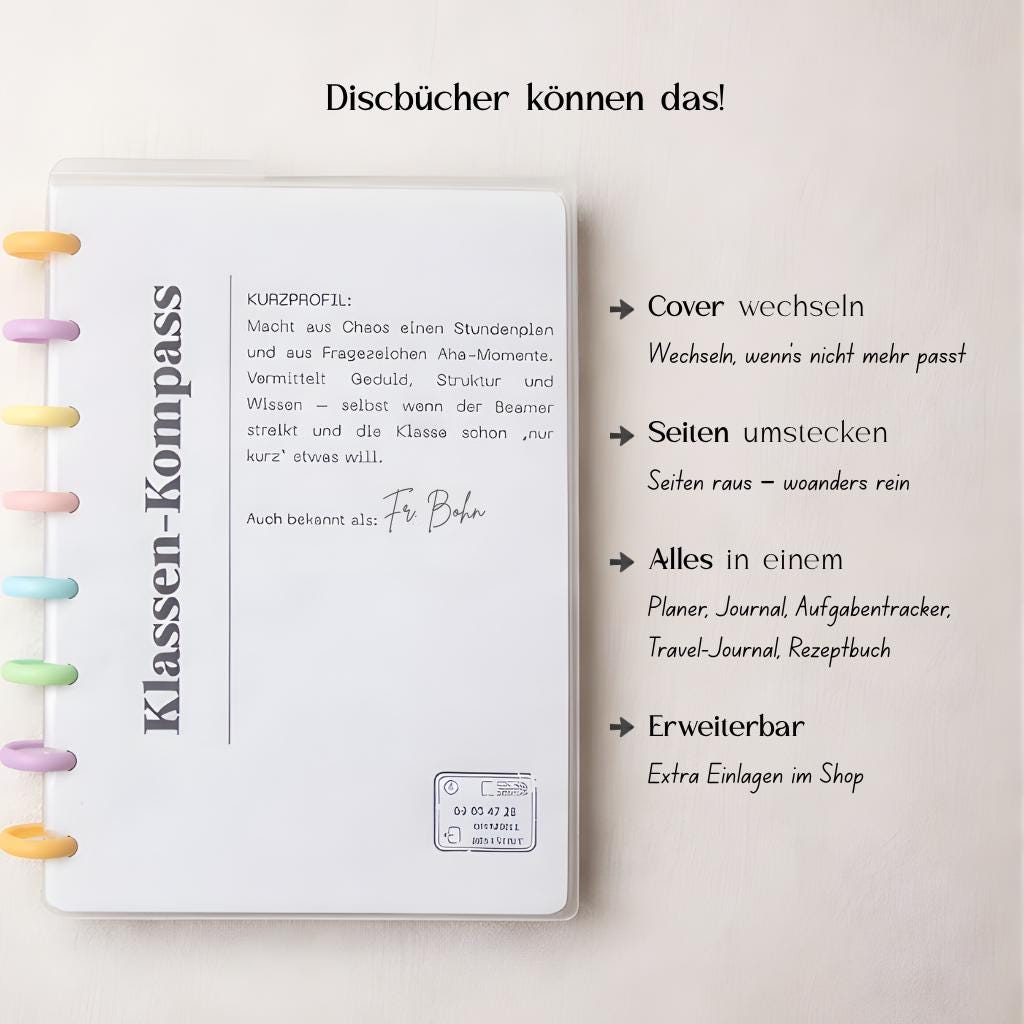 Discbücher können das!
Klassen-Kompass
KURZPROFIL:
Macht aus Chaos einen Stundenplan
und aus Fragezeichen Aha-Momente.
Vermittelt Geduld, Struktur und
Wissen – selbst wenn der Beamer
streikt und die Klasse schon ‚nur
kurz‘ etwas will.
Auch bekannt als: Fr. Bohn
Cover wechseln
Wechseln, wenn's nicht mehr passt
Seiten umstecken
Seiten raus – woanders rein
Alles in einem
Planer, Journal, Aufgabentracker,
Travel-Journal, Rezeptbuch
Erweiterbar
Extra Einlagen im Shop